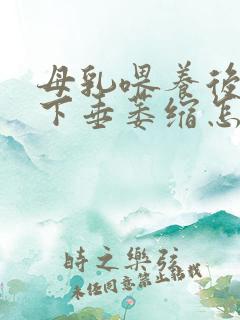 母乳喂养後
下垂萎缩怎
時之樂弦
未经同意禁止转载